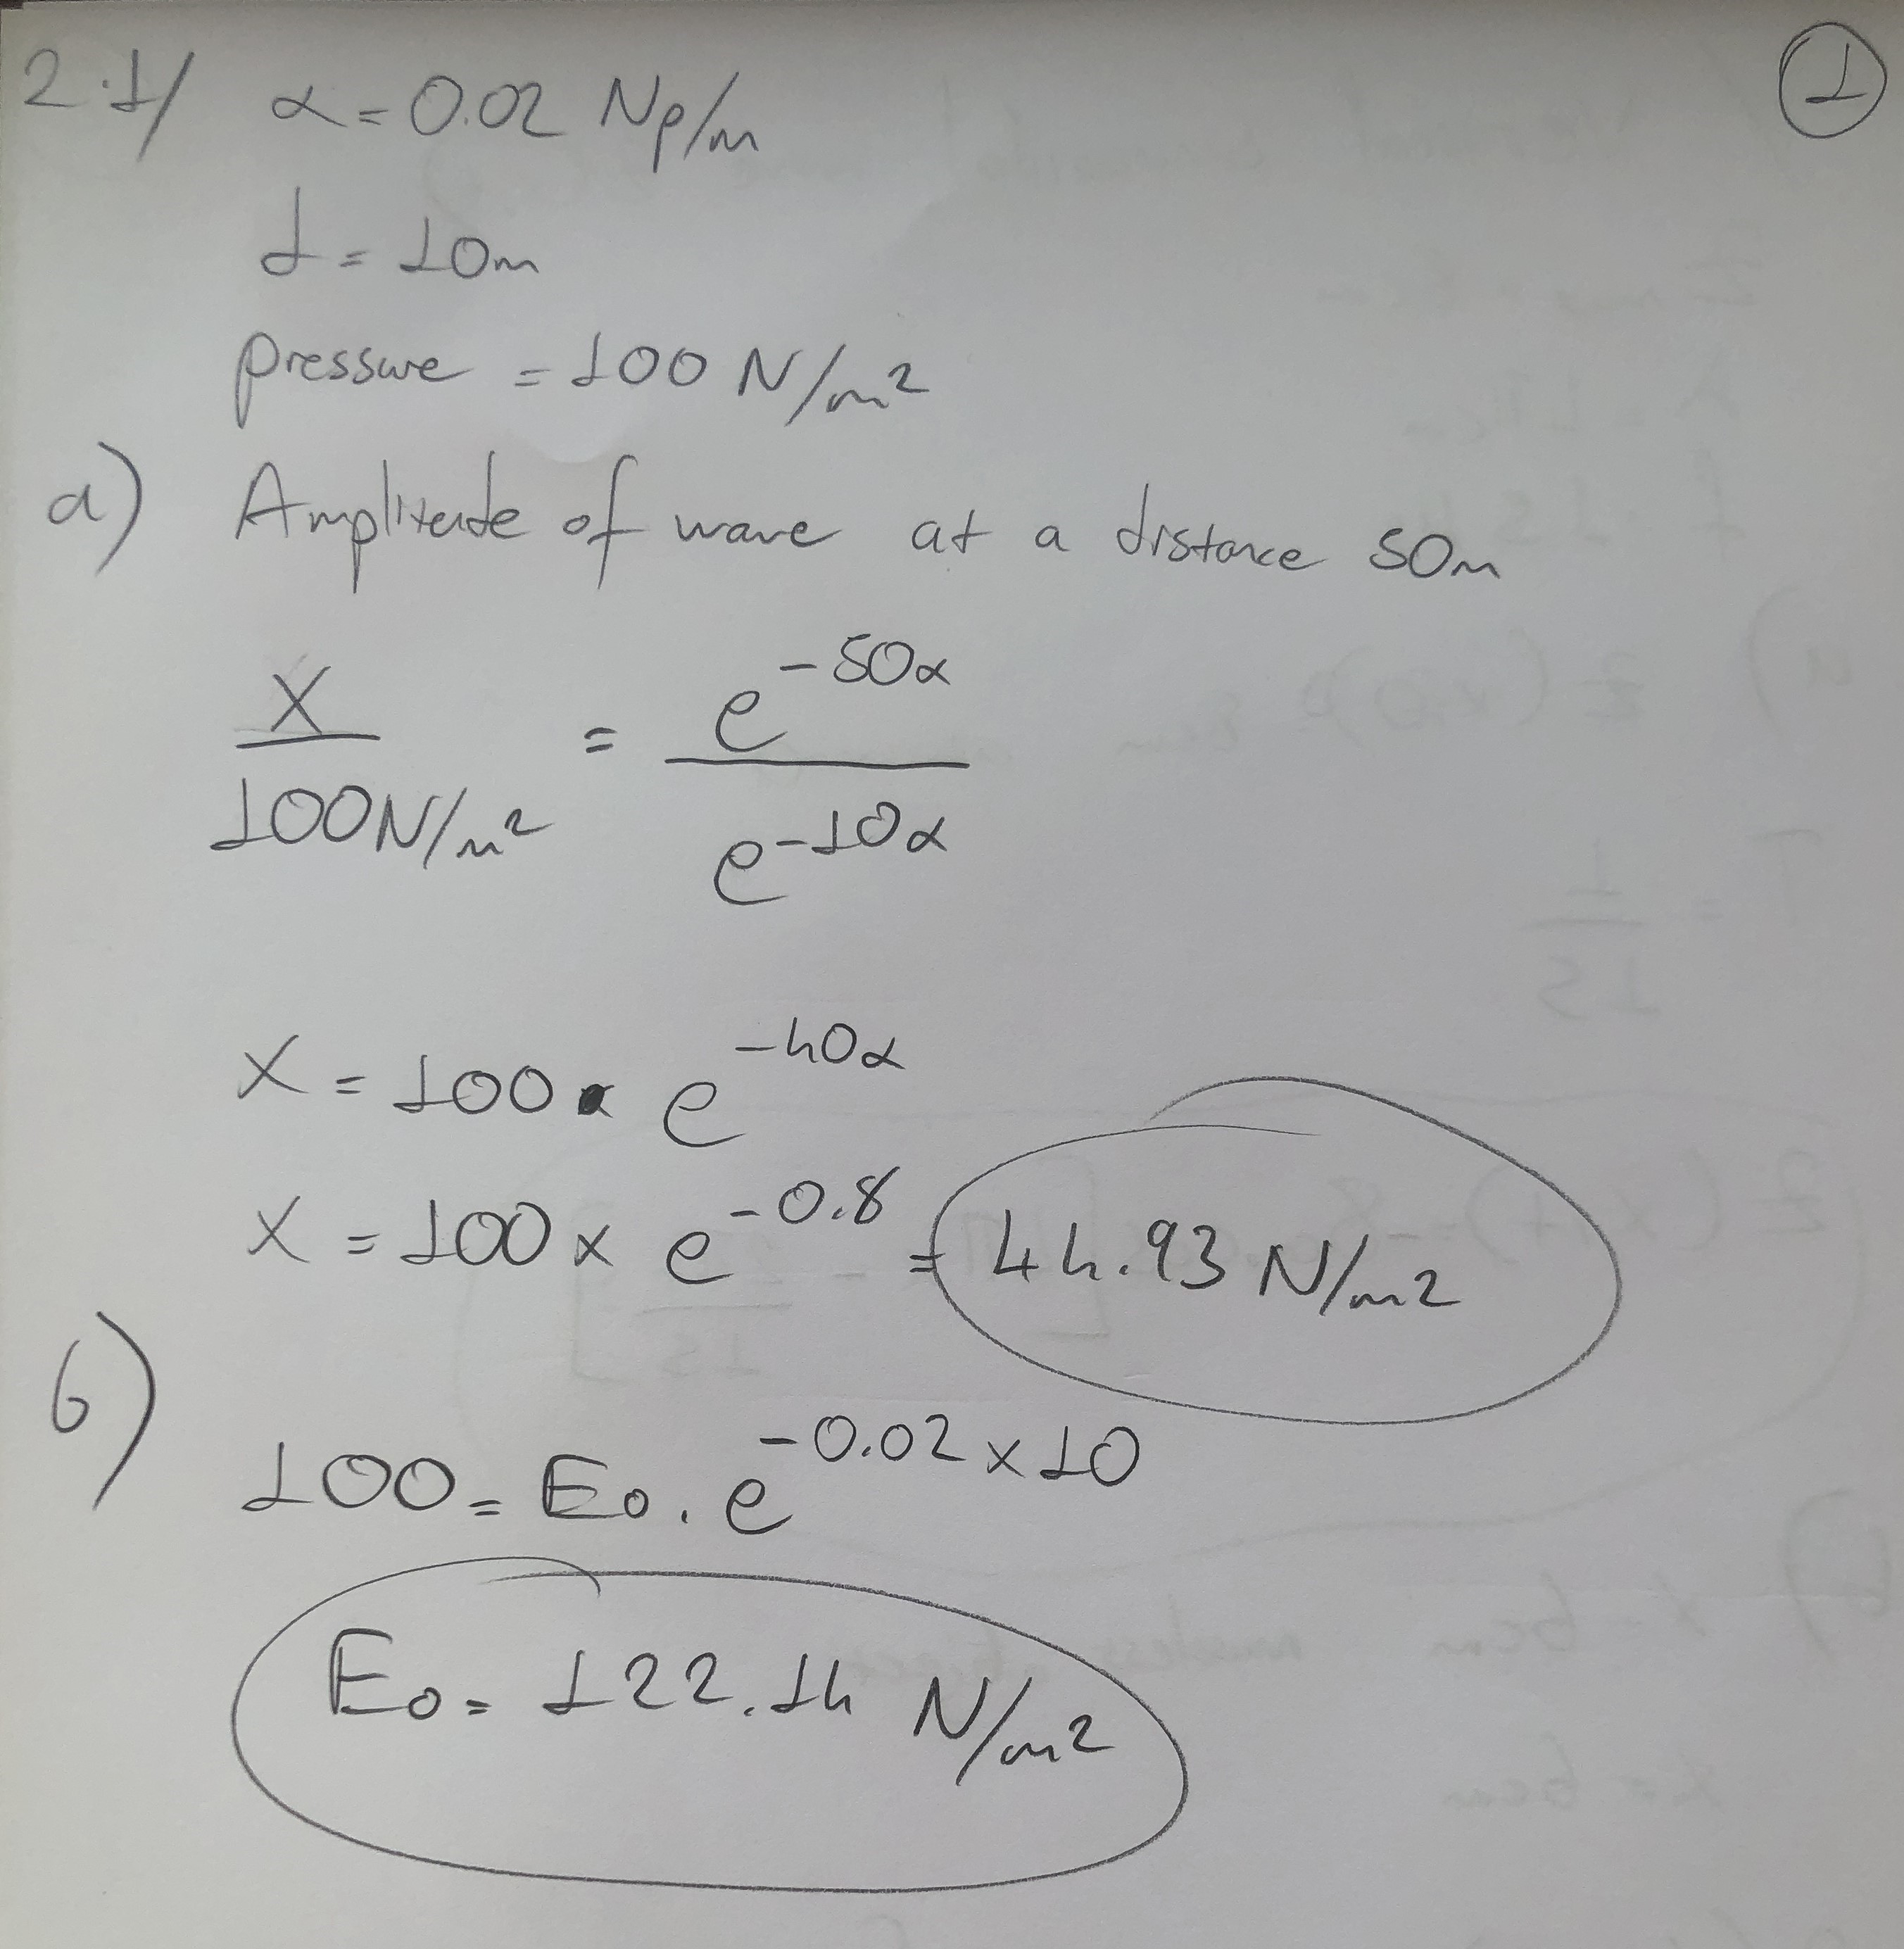 2.1/ α = 0.02 Np/m
①
d = 10m
pressure = 100 N/m²
a) Amplitude of wave at a distance 50m
X / 100N/m² = e^-50α / e^-10α
X = 100 . e^-40α
X = 100 x e^-0.8 = 44.93 N/m²
b)
100 = E₀ . e^-0.02 x 10
E₀ = 122.14 N/m²